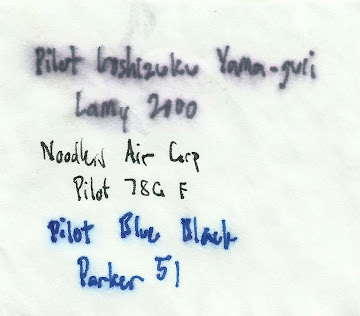 Pilot Iroshizuku Yama-guri
Lamy 2000
Noodlers Air Corp
Pilot 78G F
Pilot Blue Black
Parker 51